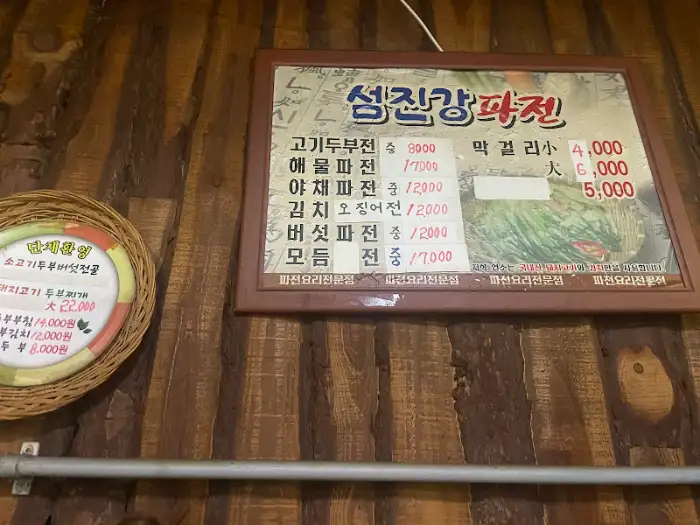 섬진강파전
고기두부전 중 8000
해물파전 17,000
야채파전 중 12,000
김치오징어전 12,000
버섯파전 중 12,000
모듬 전 중 17,000
막걸리小 4,000
大 6,000
5,000
국내산 돼지고기와 김치만을 사용합니다
파전요리전문점 파전요리전문점 파전요리전문점 파전요리전문점
단체환영
소고기두부버섯전골
돼지고기 두부찌개
大 22,000
두부부침 14,000원
부김치 12,000원
두부 8,000원